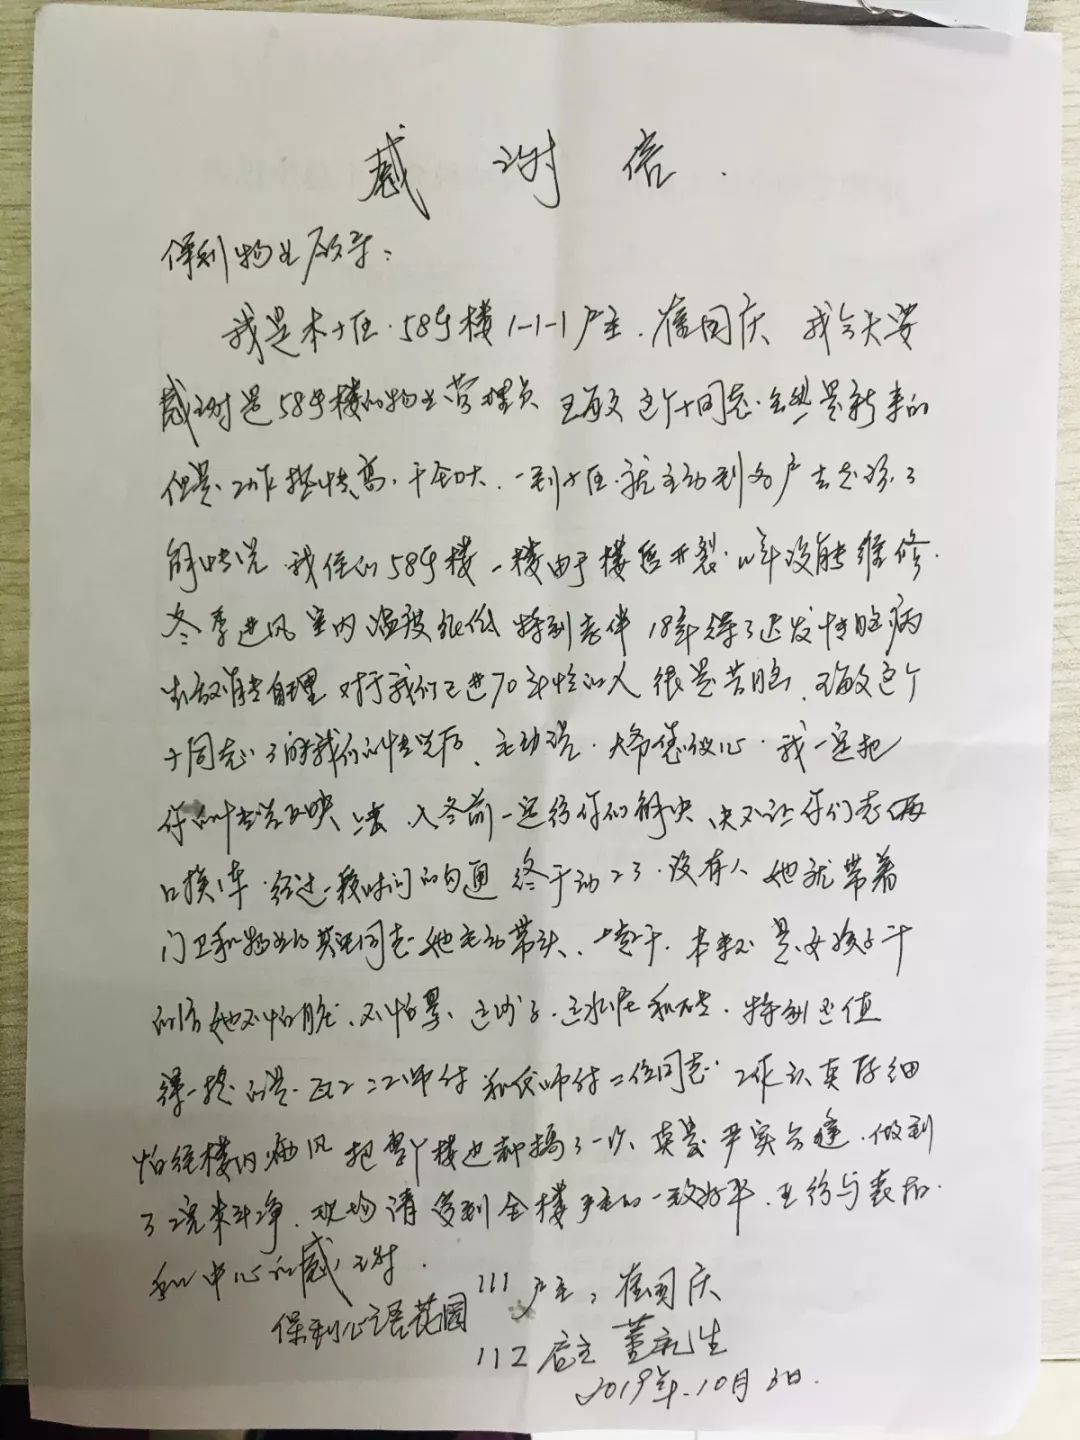 感谢信.
保利物业领导:
我是本小区.58号楼1-1-1户主.崔国庆 我今天要
感谢是58号楼的物业管理员 王敏 这个小同志.虽然是新来的
但是工作热情高.干劲大.一到小区.就主动到各户去走访.了
解情况.我住的58号楼一楼由于楼 开裂.几年没能维修.
冬季进风室内温度很低 特别老伴18年得了迟发性脑病
生活不能自理 对于我们已进70年龄的人很是苦恼.王敏这个
小同志了解我们的情况后、主动说.大爷您放心.我一定把
你的情况反映上去.入冬前一定给你们解决 决不让你们老两
口挨冻.经过一段时间的沟通 终于动工了.没有人她就带着
门卫和物业的 同志 她主动带头、一起干.本来不是女孩子干
的活她不怕脏、不怕累、运沙子.运水泥和砖.特别还值
得一提的是.瓦工 师付和 师付二位同志.工作认真仔细
怕经楼内漏风 把整个楼也都搞了一次、真是严实合缝.做到
了 干净.现场清 受到全楼户主的一致好评.并给与表扬.
和中心的感谢.
111户主:崔国庆
保利心语花园
112户主 董 生
2019年.10月3日.